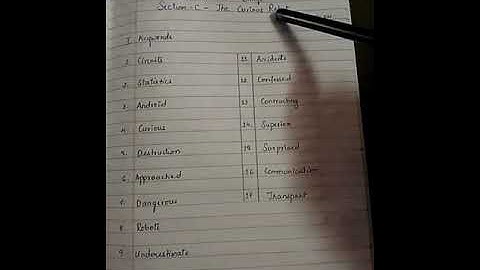 Section - C - The Curious Robot
I. Keywords
1. Circuits
2. Statistics
3. Android
4. Curious
5. Destruction
6. Approached
7. Dangerous
8. Robots
9. Underestimate
11 Accidents
12 Confused
13 Contracting
14. Superior
15 Surprised
16 Communication
17 Transport